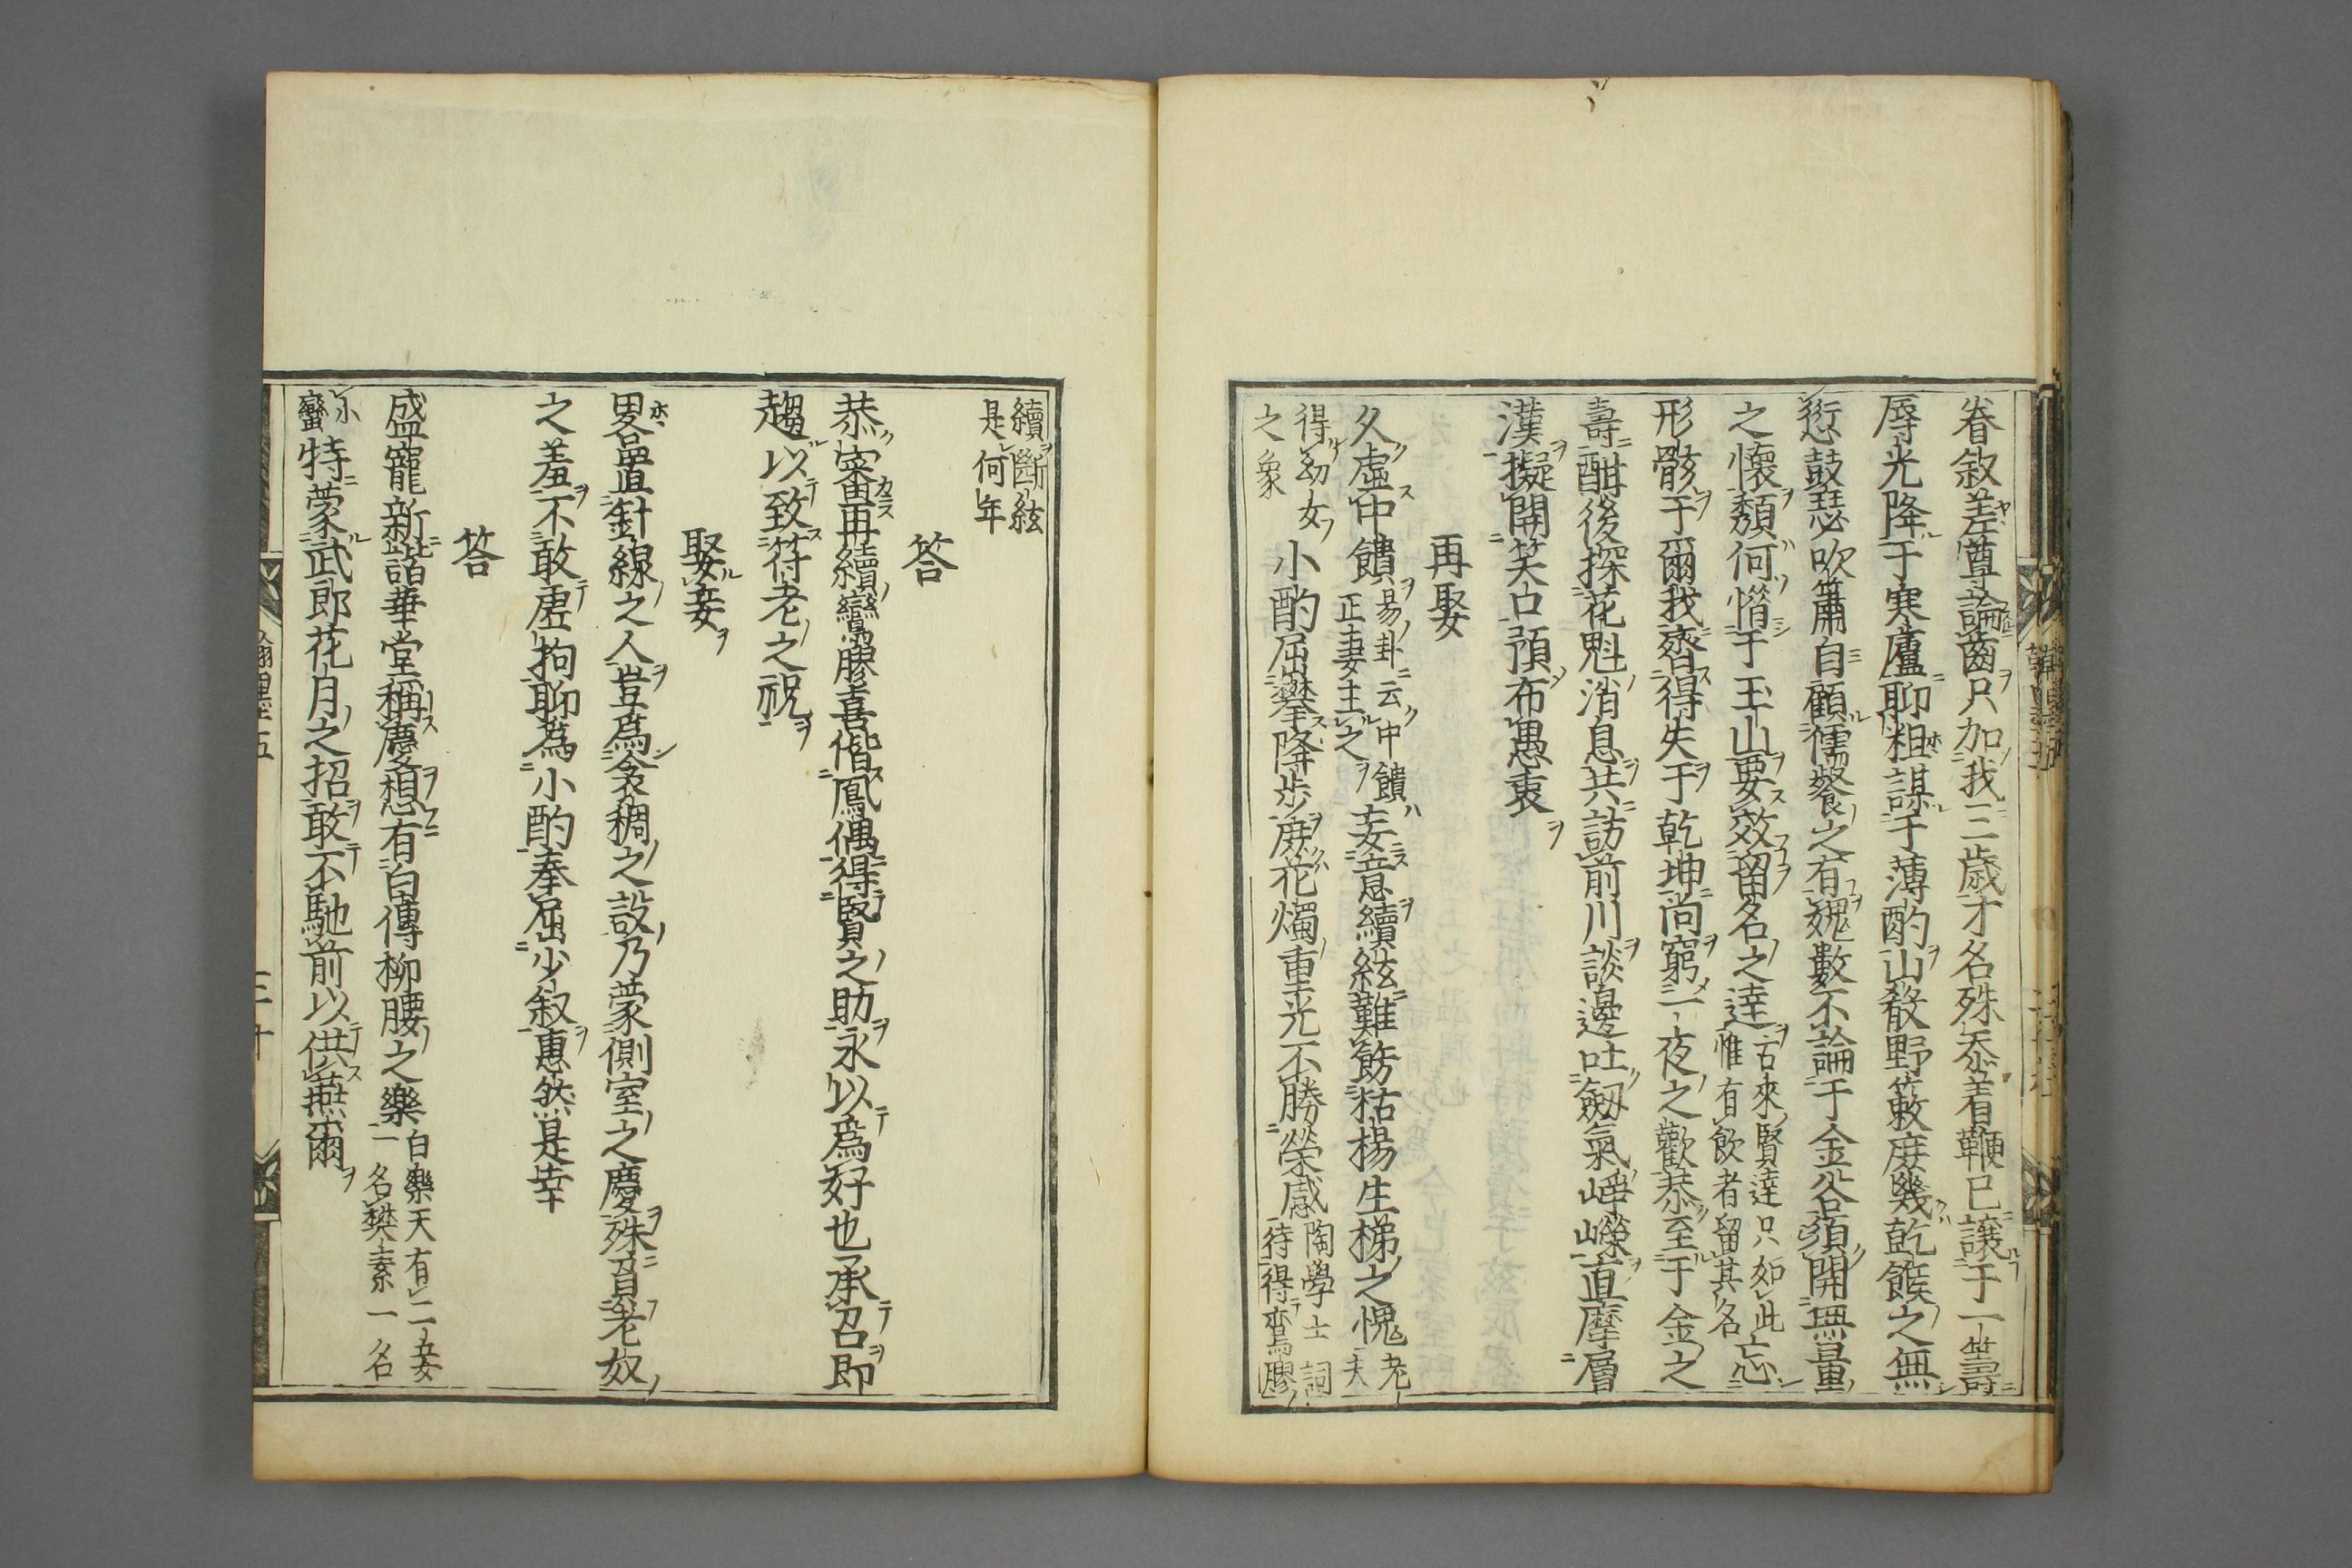 眷敘差尊論齒只加我三歲才名殊忝着鞭已讓于一籌
辱光降于寒廬聊粗謀于薄酌山殽野蔌庶幾乾餱之無
愆鼓瑟吹簫自顧儒餐之有媿數不論于金谷須開無量
之懷頹何惜于玉山要效留名之達古來賢達只如此惟有飲者留其名忘
形骸于爾我齊得失于乾坤尚窮一夜之歡恭至于金之
壽酣後探花魁消息共訪前川談邊吐劔氣崢嶸直摩層
漢擬開笑口預布愚衷
再娶
久虛中饋易卦云中饋正妻主之妄意續絃難飭枯楊生梯之愧老夫
得幼女之象小酌屈攀降步庶花燭重光不勝榮感陶學士詞待得鸞膠
續斷絃是何年
答
恭審再續鸞膠喜偕鳳偶得賢之助永以為好也承召即
趨以致符老之祝
娶妾
畧置針線之人豈為衾裯之設乃蒙側室之慶殊負老奴
之羞不敢虛拘聊為小酌奉屈少叙惠然是幸
答
盛寵新諧華堂稱慶想有白傳柳腰之樂白樂天有二妾一名樊素一名
小蠻特蒙武郎花月之招敢不馳前以供燕爾
三十